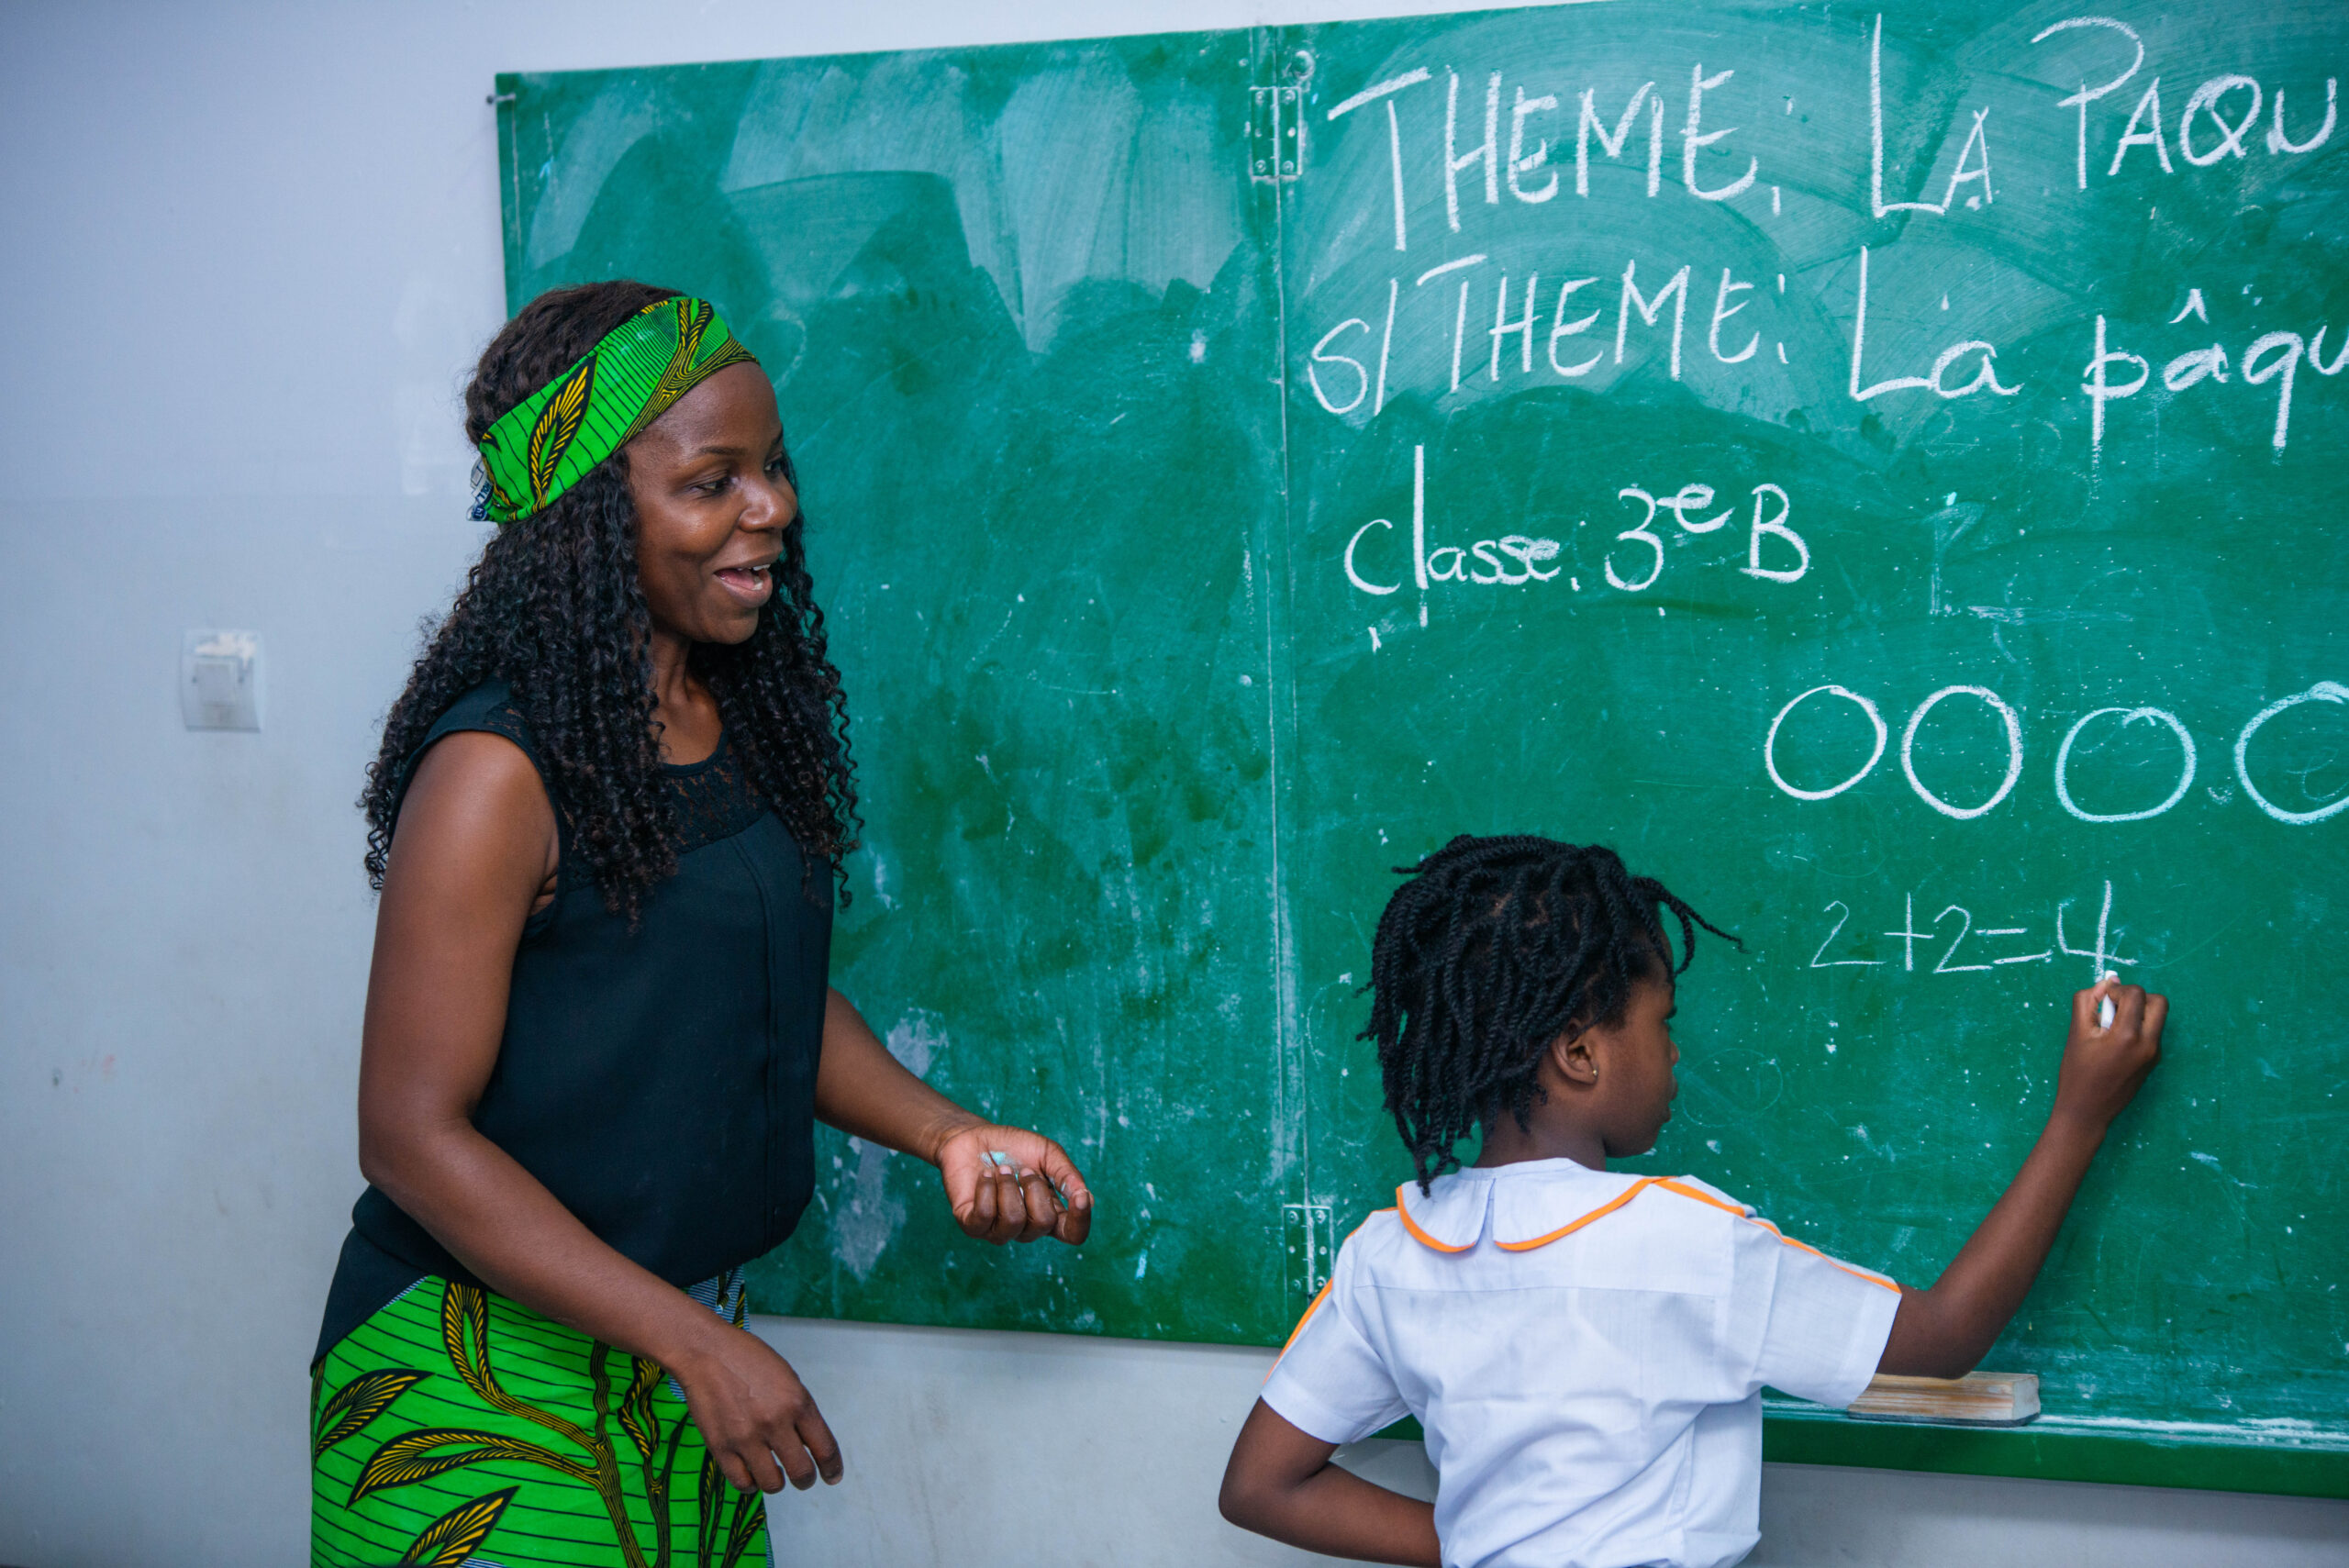 THEME: LA PAQU
S/THEME: La pâqu
Classe: 3e B
OOOO
2+2=4